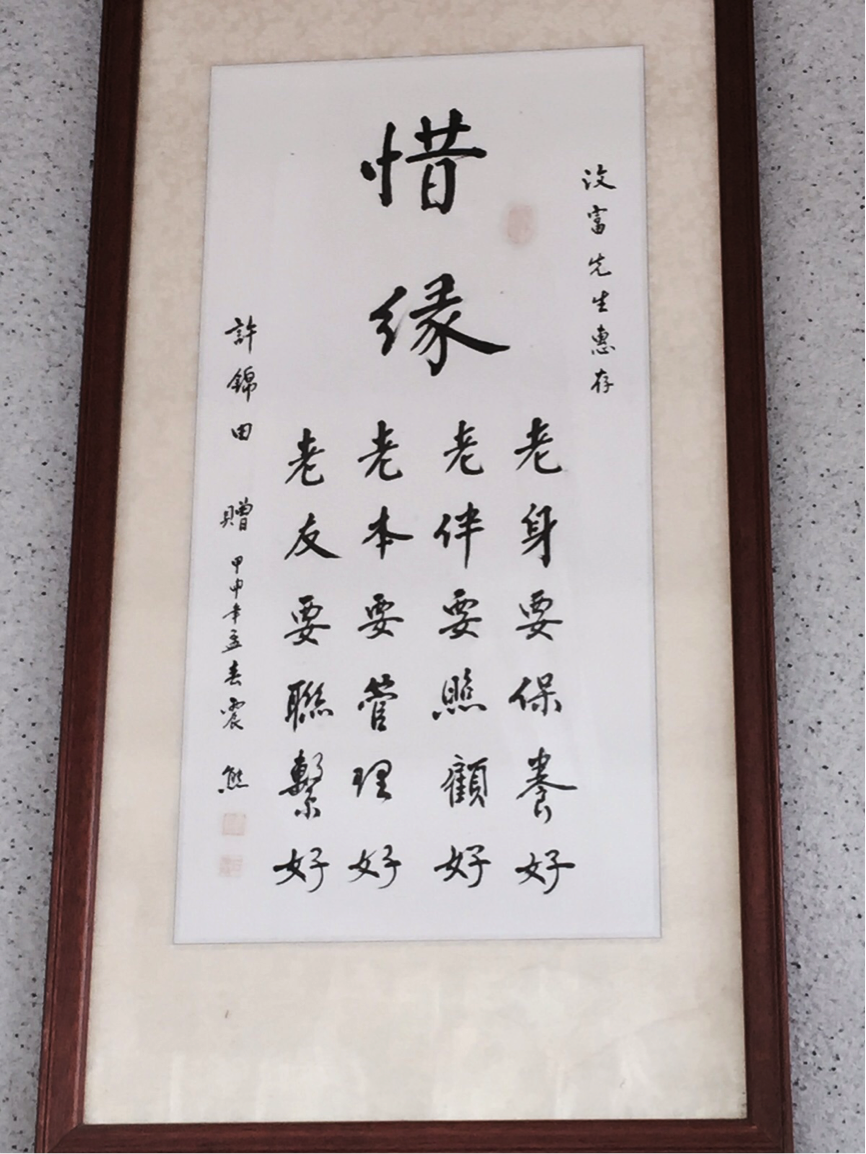 惜缘
汶富先生惠存
老身要保養好
老伴要照顧好
老本要管理好
老友要聯繫好
許錦田 贈
甲申年孟春震熊